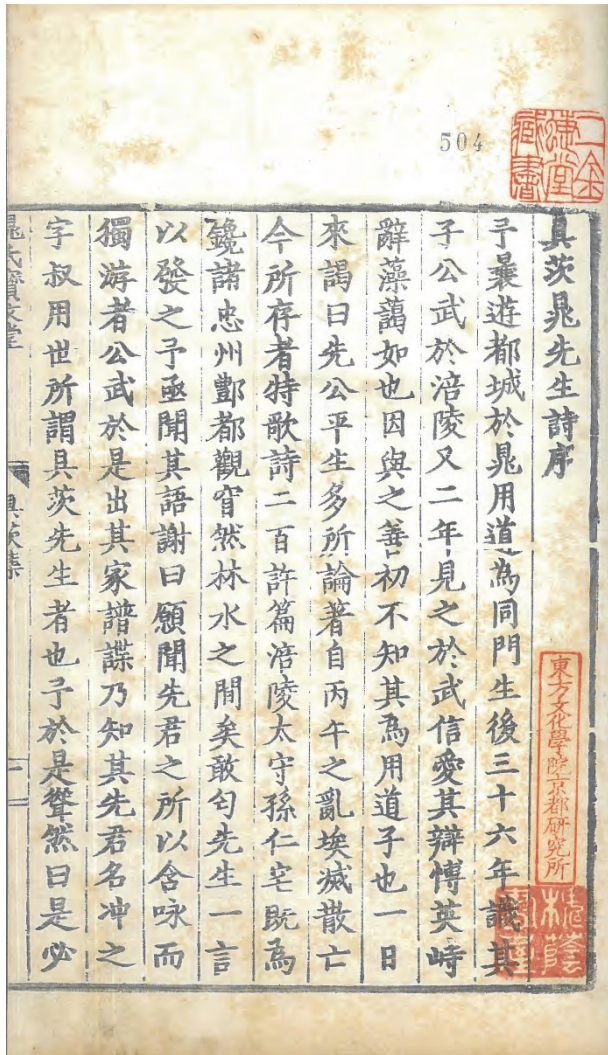 504
具茨晁先生詩序
予曩遊都城於晁用道為同門生後三十六年識其
子公武於涪陵又二年見之於武信愛其辯博英峙
辭藻藹如也因與之善初不知其為用道子也一日
來謁曰先公平生多所論著自丙午之亂埃滅散亡
今所存者特歌詩二百許篇涪陵太守孫仁宅既為
鑱諸忠州酆都觀窅然林水之間矣敢匄先生一言
以發之予亟聞其語謝曰願聞先君之所以含咏而
獨游者公武於是出其家譜諜乃知其先君名冲之
字叔用世所謂具茨先生者也予於是聳然曰是必
晁氏寶文堂
具茨集
一
東方文化學院京都研究所